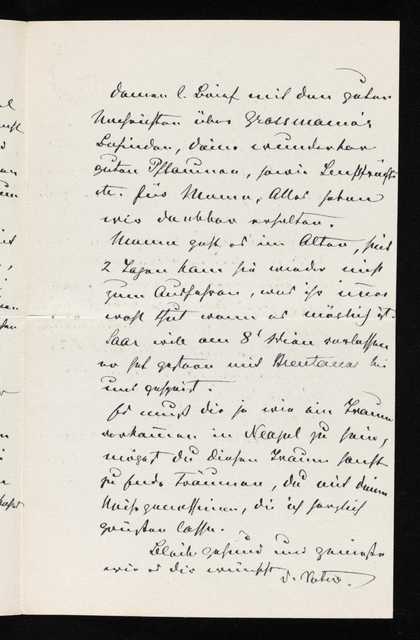 Deinen l. Brief mit den guten
Nachrichten über Grossmama's
Befinden, deine wunderbar
guten Pflaumen, sowie
etc. für Mama, Alles haben
wir dankbar erhalten.
Mama geht es im Alten, seit
2 Tagen kam sie wieder nicht
zum Ausfahren, was ihr immer
wohl thut wenn es möglich ist.
Saar will am 8' Wien verlassen
er hat gestern mit Brentanos bei
uns gespeist.
Es muß dir ja wie ein Traum
vorkommen in Neapel zu sein,
mögest du diesen Traum sanft
zu Ende träumen, du mit deinen
Reisegenossinen, die ich herzlich
grüßen lasse.
Bleib gesund und genieße
wie es dir wünscht
d. Vater.